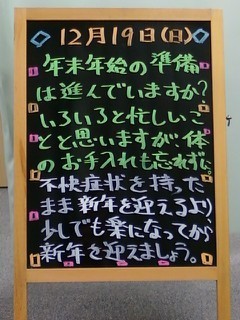 12月19日(日)
年末年始の準備
は進んでいますか?
いろいろと忙しいこ
とと思いますが、体
のお手入れも忘れずに。
不快症状を持った
まま新年を迎えるより
少しでも楽になってから
新年を迎えましょう。